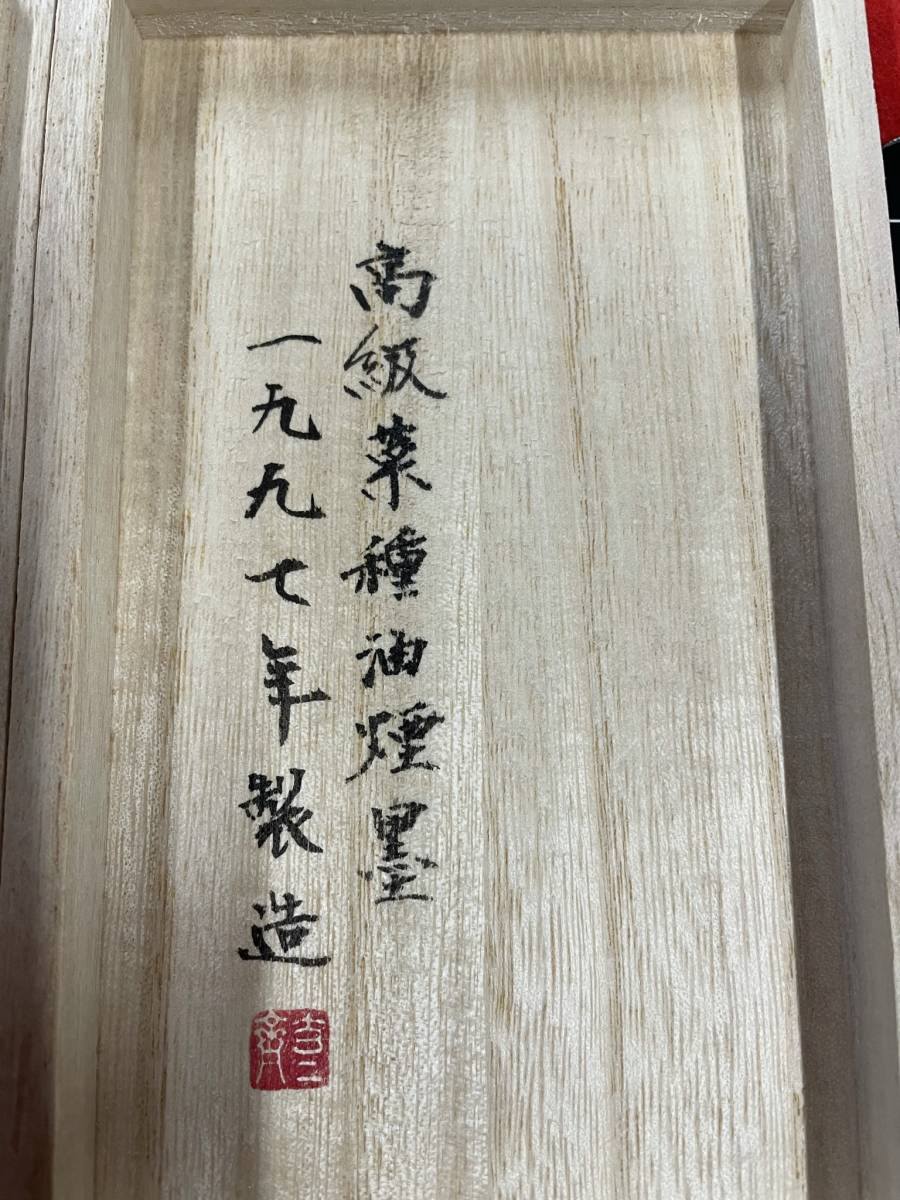 高級菜種油煙墨
一九九七年製造